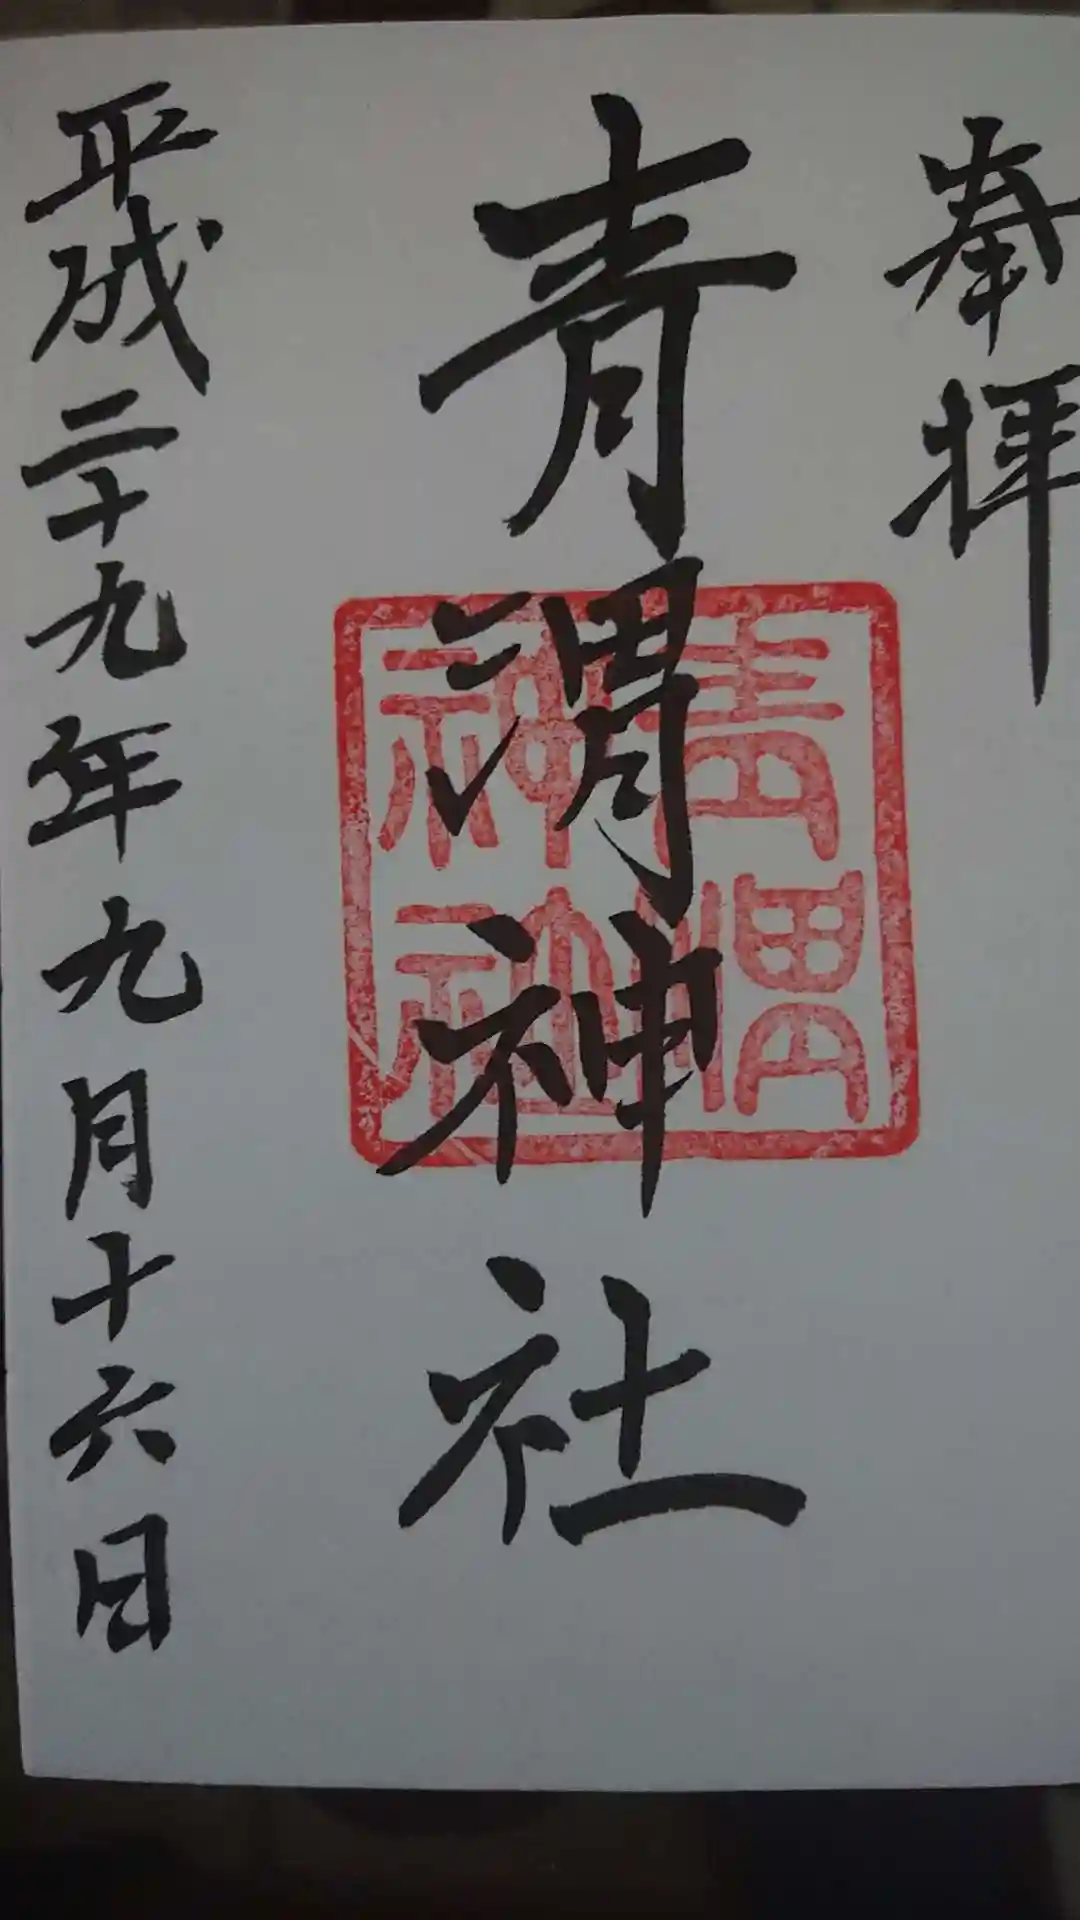 奉拝
青渭神社
青渭
神社
平成二十九年九月十六日